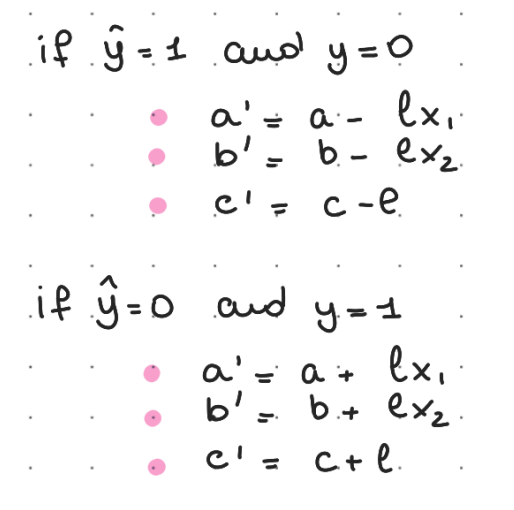 if ŷ = 1 and y = 0
• a' = a - lx₁
• b' = b - lx₂
• c' = c - l
if ŷ = 0 and y = 1
• a' = a + lx₁
• b' = b + lx₂
• c' = c + l